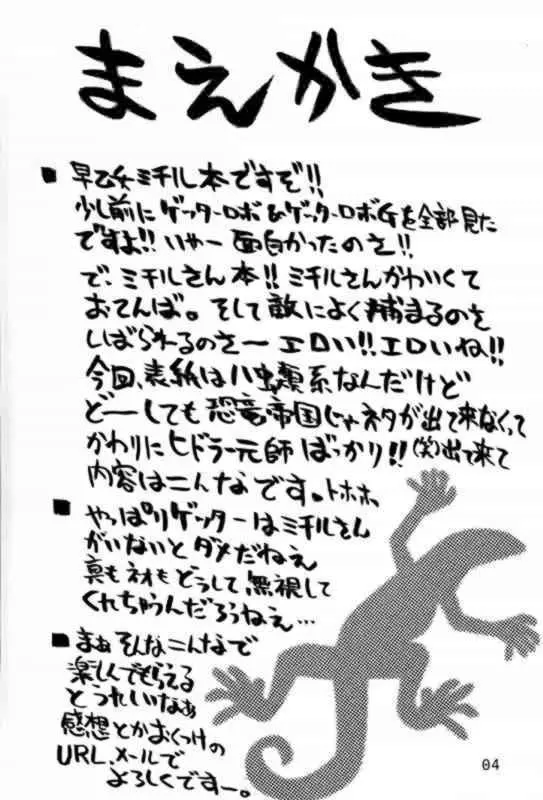 まえかき
■ 早乙女ミチル本ですぞ!!
少し前にゲッターロボ&ゲッターロボGを全部見た
ですよ!! いやー面白かったのさ!!
で、ミチルさん本!! ミチルさんかわいくて
おてんば。そして敵によく捕まるのさ
しばられるのさー エロい!! エロいね!!
今回、表紙はハ虫類系なんだけど
どーしても恐竜帝国じゃネタが出て来なくって
かわりにヒドラー元師ばっかり!!(笑)出て来て
内容はこんなです。トホホ。
■ やっぱりゲッターはミチルさん
がいないとダメだねえ
真もネオもどうして無視して
くれちゃうんだろうねえ…
■ まぁそんなこんなで
楽しんでもらえる
とうれしいなあ
感想とかおくつけの
URL、メールで
よろしくですー。
04